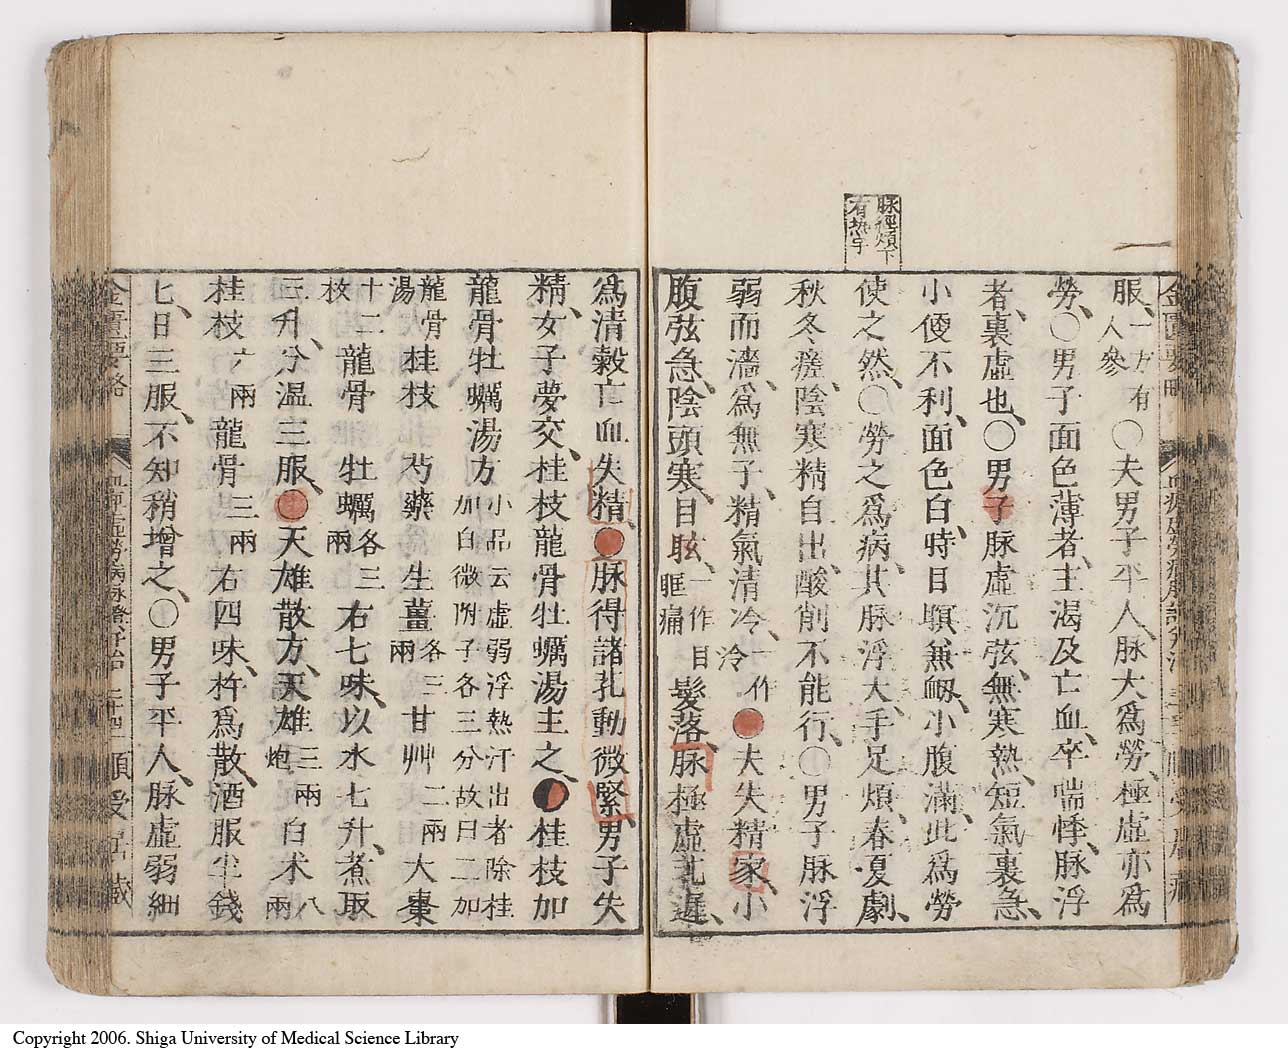 脉經煩下
有热字
服、一方有人參〇夫男子平人、脉大爲勞、極虛亦爲
勞、〇男子面色薄者、主渴及亡血、卒喘悸、脉浮
者、裏虛也、〇男子脉虛沉弦、無寒熱、短氣裏急、
小便不利、面色白、時目瞑兼衂、小腹滿、此爲勞
使之然、〇勞之爲病、其脉浮大、手足煩、春夏劇、
秋冬瘥、陰寒精自出、酸削不能行、〇男子脉浮
弱而濇、爲無子、精氣清冷、一作泠●夫失精家、小
腹弦急、陰頭寒、目眩、一作目眶痛髮落、脉極虛芤遲、
爲清穀亡血失精、●脉得諸芤動微緊、男子失
精、女子夢交、桂枝龍骨牡蠣湯主之、●桂枝加
龍骨牡蠣湯方小品云虛弱浮熱汗出者除桂加白微附子各三分故曰二加
龍骨湯桂枝 芍藥 生薑各三兩甘艸二兩大棗
十二枚龍骨 牡蠣各三兩右七味、以水七升、煮取
三升、分温三服、●天雄散方、天雄三兩炮白朮八兩
桂枝六兩龍骨三兩右四味、杵爲散、酒服半錢
七、日三服、不知稍增之、〇男子平人、脉虛弱細
金匱要略 血痺虛勞病脉證并治 二十四